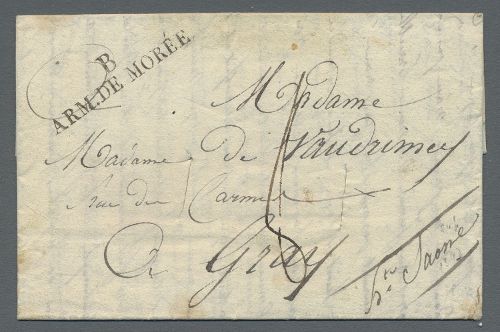 B
ARM. DE MORÉE
Madame
Madame de Vaudrimey
rue du Carmel
A Gray
hte Saone